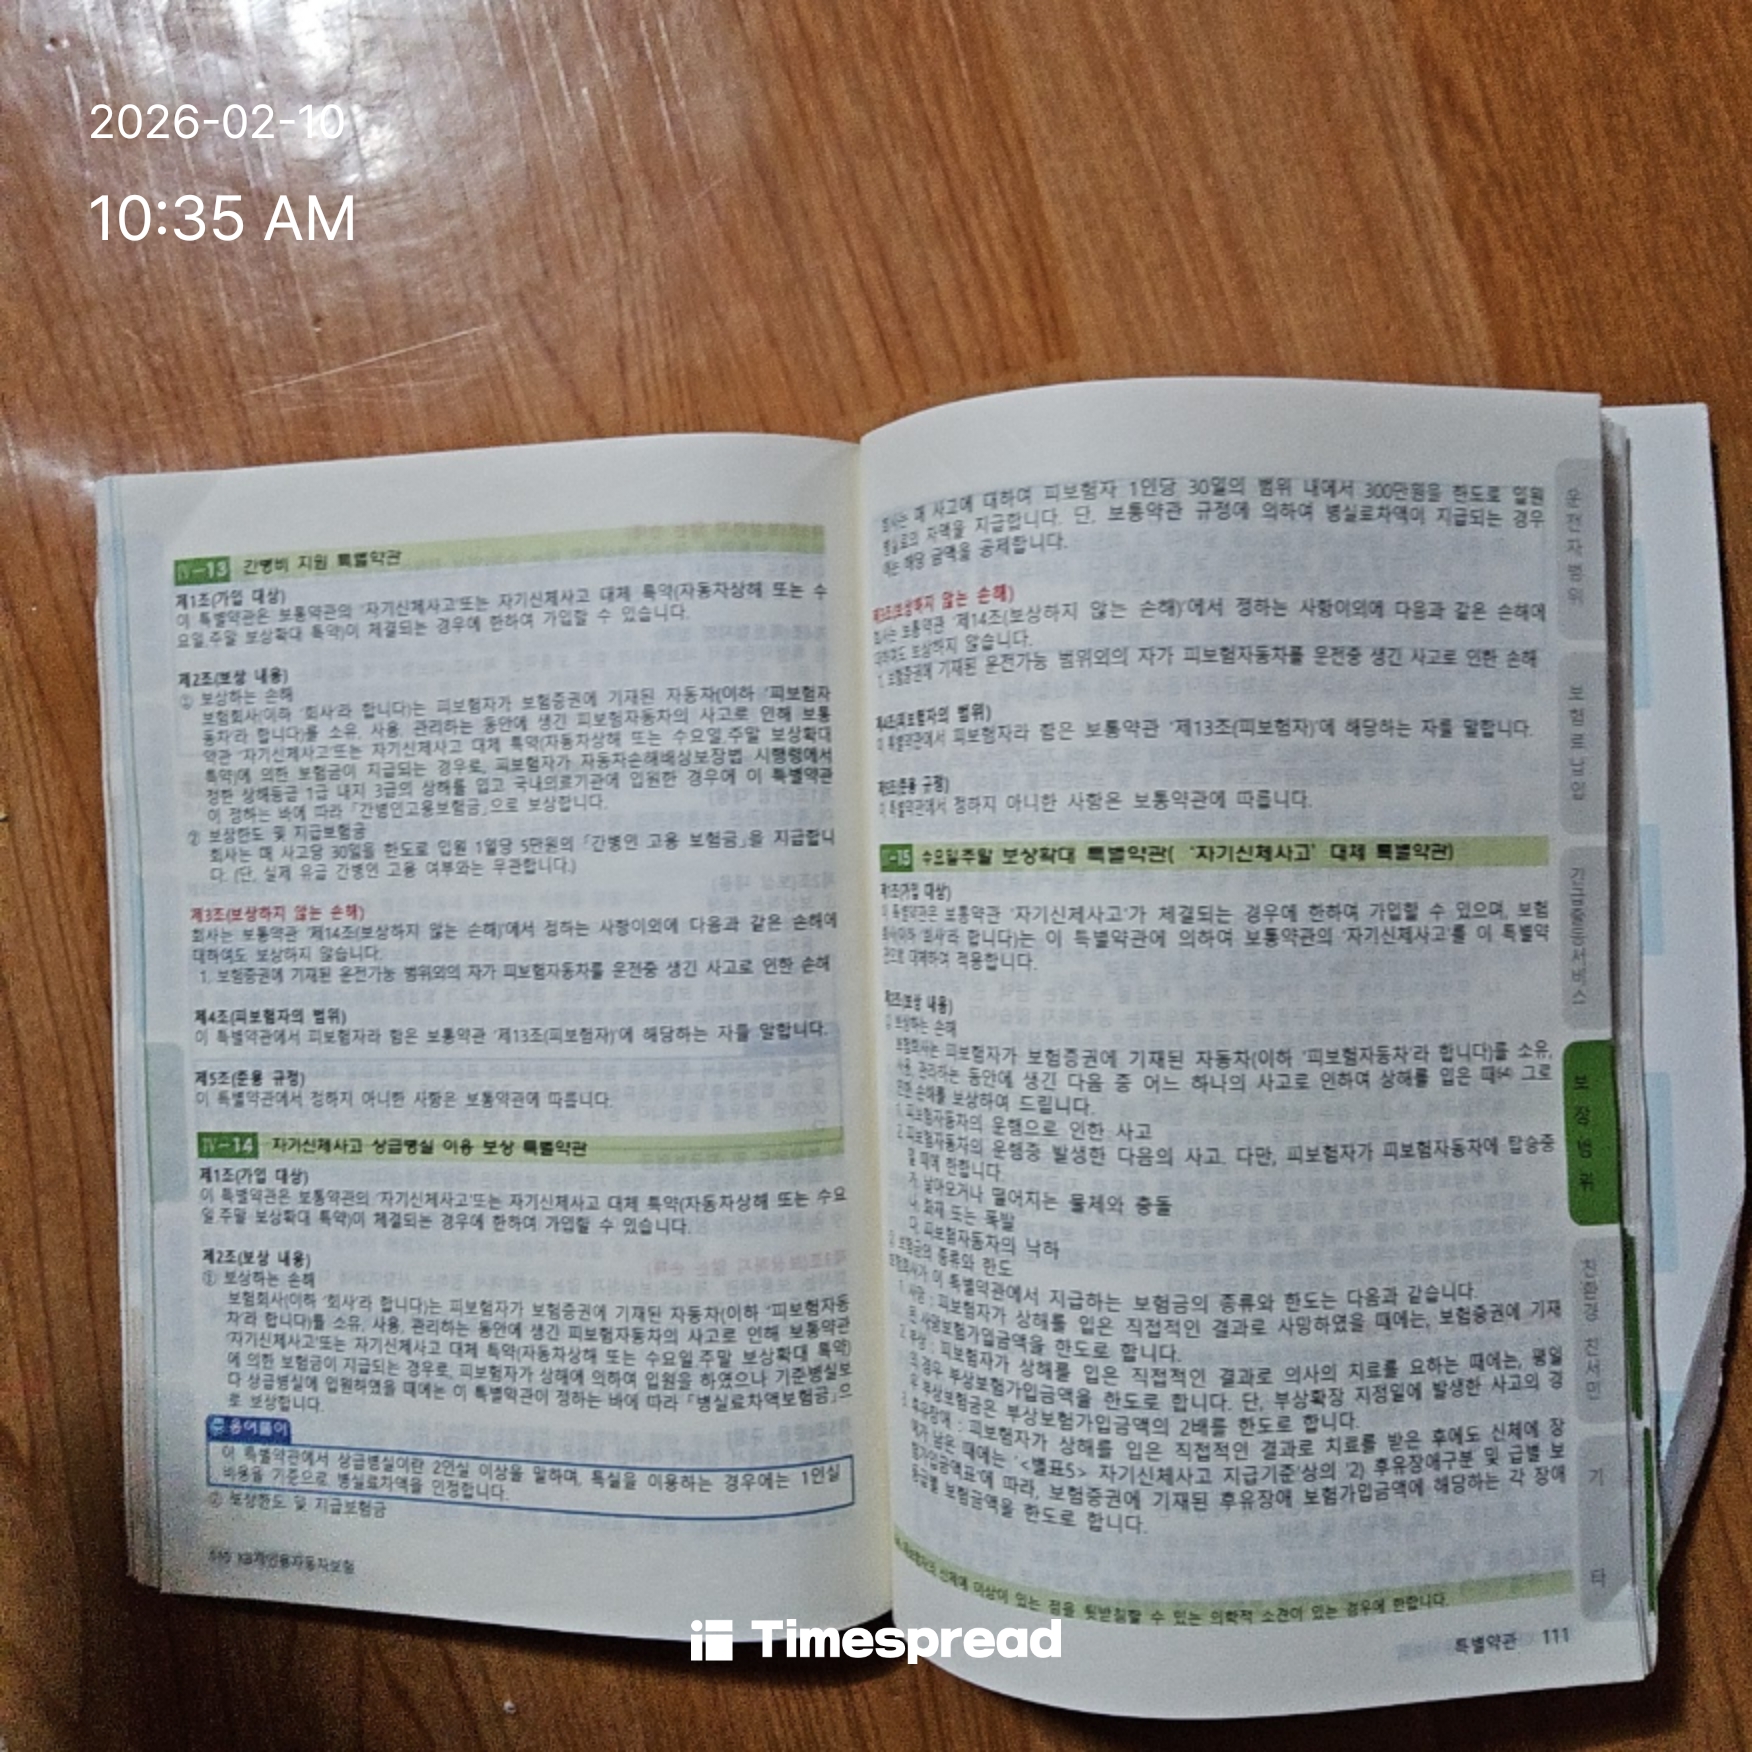 2026-02-10
10:35 AM
Ⅳ-13 간병비 지원 특별약관
제1조(가입 대상)
이 특별약관은 보통약관의 '자기신체사고'또는 자기신체사고 대체 특약(자동차상해 또는 수
요일,주말 보상확대 특약)이 체결되는 경우에 한하여 가입할 수 있습니다.
제2조(보상 내용)
① 보상하는 손해
보험회사(이하 '회사'라 합니다)는 피보험자가 보험증권에 기재된 자동차(이하 '피보험자
동차'라 합니다)를 소유, 사용, 관리하는 동안에 생긴 피보험자동차의 사고로 인해 보통
약관 '자기신체사고'또는 자기신체사고 대체 특약(자동차상해 또는 수요일,주말 보상확대
특약)에 의한 보험금이 지급되는 경우로, 피보험자가 자동차손해배상보장법 시행령에서
정한 상해등급 1급 내지 3급의 상해를 입고 국내의료기관에 입원한 경우에 이 특별약관
이 정하는 바에 따라 「간병인고용보험금」으로 보상합니다.
② 보상한도 및 지급보험금
회사는 매 사고당 30일을 한도로 입원 1일당 5만원의 「간병인 고용 보험금」을 지급합니
다. (단, 실제 유급 간병인 고용 여부와는 무관합니다.)
제3조(보상하지 않는 손해)
회사는 보통약관 '제14조(보상하지 않는 손해)'에서 정하는 사항이외에 다음과 같은 손해에
대하여도 보상하지 않습니다.
1. 보험증권에 기재된 운전가능 범위외의 자가 피보험자동차를 운전중 생긴 사고로 인한 손해
제4조(피보험자의 범위)
이 특별약관에서 피보험자라 함은 보통약관 '제13조(피보험자)'에 해당하는 자를 말합니다.
제5조(준용 규정)
이 특별약관에서 정하지 아니한 사항은 보통약관에 따릅니다.
Ⅳ-14 자기신체사고 상급병실 이용 보상 특별약관
제1조(가입 대상)
이 특별약관은 보통약관의 '자기신체사고'또는 자기신체사고 대체 특약(자동차상해 또는 수요
일,주말 보상확대 특약)이 체결되는 경우에 한하여 가입할 수 있습니다.
제2조(보상 내용)
① 보상하는 손해
보험회사(이하 '회사'라 합니다)는 피보험자가 보험증권에 기재된 자동차(이하 '피보험자동
차'라 합니다)를 소유, 사용, 관리하는 동안에 생긴 피보험자동차의 사고로 인해 보통약관
'자기신체사고'또는 자기신체사고 대체 특약(자동차상해 또는 수요일,주말 보상확대 특약)
에 의한 보험금이 지급되는 경우로, 피보험자가 상해에 의하여 입원을 하였으나 기준병실보
다 상급병실에 입원하였을 때에는 이 특별약관이 정하는 바에 따라 「병실료차액보험금」으
로 보상합니다.
용어풀이
이 특별약관에서 상급병실이란 2인실 이상을 말하며, 특실을 이용하는 경우에는 1인실
비용을 기준으로 병실료차액을 인정합니다.
② 보상한도 및 지급보험금
KB개인용자동차보험
회사는 매 사고에 대하여 피보험자 1인당 30일의 범위 내에서 300만원을 한도로 입원
병실료의 차액을 지급합니다. 단, 보통약관 규정에 의하여 병실료차액이 지급되는 경우
에는 해당 금액을 공제합니다.
제3조(보상하지 않는 손해)
회사는 보통약관 '제14조(보상하지 않는 손해)'에서 정하는 사항이외에 다음과 같은 손해에
대하여도 보상하지 않습니다.
1. 보험증권에 기재된 운전가능 범위외의 자가 피보험자동차를 운전중 생긴 사고로 인한 손해
제4조(피보험자의 범위)
이 특별약관에서 피보험자라 함은 보통약관 '제13조(피보험자)'에 해당하는 자를 말합니다.
제5조(준용 규정)
이 특별약관에서 정하지 아니한 사항은 보통약관에 따릅니다.
Ⅳ-15 수요일,주말 보상확대 특별약관( '자기신체사고' 대체 특별약관)
제1조(가입 대상)
이 특별약관은 보통약관 '자기신체사고'가 체결되는 경우에 한하여 가입할 수 있으며, 보험
회사(이하 '회사'라 합니다)는 이 특별약관에 의하여 보통약관의 '자기신체사고'를 이 특별약
관으로 대체하여 적용합니다.
제2조(보상 내용)
① 보상하는 손해
보험회사는 피보험자가 보험증권에 기재된 자동차(이하 '피보험자동차'라 합니다)를 소유,
사용, 관리하는 동안에 생긴 다음 중 어느 하나의 사고로 인하여 상해를 입은 때 그로
인한 손해를 보상하여 드립니다.
1. 피보험자동차의 운행으로 인한 사고
2. 피보험자동차의 운행중 발생한 다음의 사고. 다만, 피보험자가 피보험자동차에 탑승중
일 때에 한합니다.
가. 날아오거나 떨어지는 물체와 충돌
나. 화재 또는 폭발
다. 피보험자동차의 낙하
② 보험금의 종류와 한도
보험회사가 이 특별약관에서 지급하는 보험금의 종류와 한도는 다음과 같습니다.
1. 사망 : 피보험자가 상해를 입은 직접적인 결과로 사망하였을 때에는, 보험증권에 기재
된 사망보험가입금액을 한도로 합니다.
2. 부상 : 피보험자가 상해를 입은 직접적인 결과로 의사의 치료를 요하는 때에는, 평일
의 경우 부상보험가입금액을 한도로 합니다. 단, 부상확장 지정일에 발생한 사고의 경
우 부상보험금은 부상보험가입금액의 2배를 한도로 합니다.
3. 후유장애 : 피보험자가 상해를 입은 직접적인 결과로 치료를 받은 후에도 신체에 장
애가 남은 때에는 '<별표5> 자기신체사고 지급기준'상의 '2) 후유장애구분 및 급별 보
험가입금액표'에 따라, 보험증권에 기재된 후유장애 보험가입금액에 해당하는 각 장애
등급별 보험금액을 한도로 합니다.
피보험자의 신체에 이상이 있는 점을 뒷받침할 수 있는 의학적 소견이 있는 경우에 한합니다.
특별약관 111
운전자범위
보험료납입
긴급출동서비스
보장범위
친환경 친서민
기타
Timespread